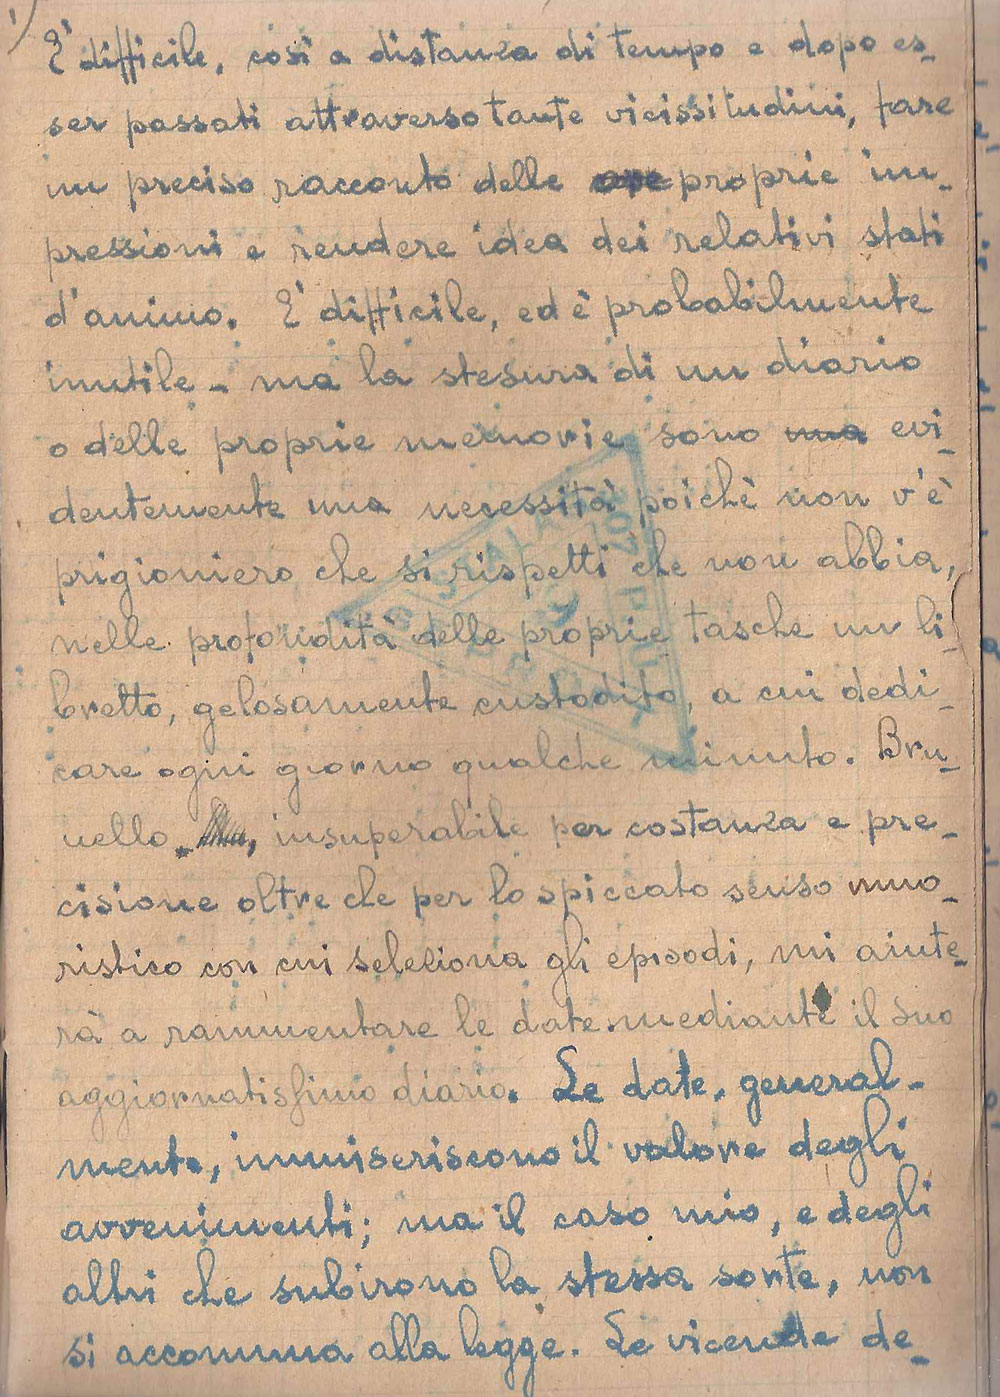 1)
E' difficile, così a distanza di tempo e dopo es-
ser passati attraverso tante vicissitudini, fare
un preciso racconto delle proprie im-
pressioni e rendere idea dei relativi stati
d'animo. E' difficile, ed è probabilmente
inutile - ma la stesura di un diario
o delle proprie memorie sono una evi-
dentemente una necessità poichè non v'è
prigioniero che si rispetti che non abbia,
nelle profondità delle proprie tasche un li-
bretto, gelosamente custodito, a cui dedi-
care ogni giorno qualche minuto. Bru-
nello, insuperabile per costanza e pre-
cisione oltre che per lo spiccato senso umo-
ristico con cui seleziona gli episodi, mi aiute-
rà a rammentare le date mediante il suo
aggiornatissimo diario. Le date, general-
mente, immiseriscono il valore degli
avvenimenti; ma il caso mio, e degli
altri che subirono la stessa sorte, non
si accomuna alla legge. Le vicende de-
STALAG
307